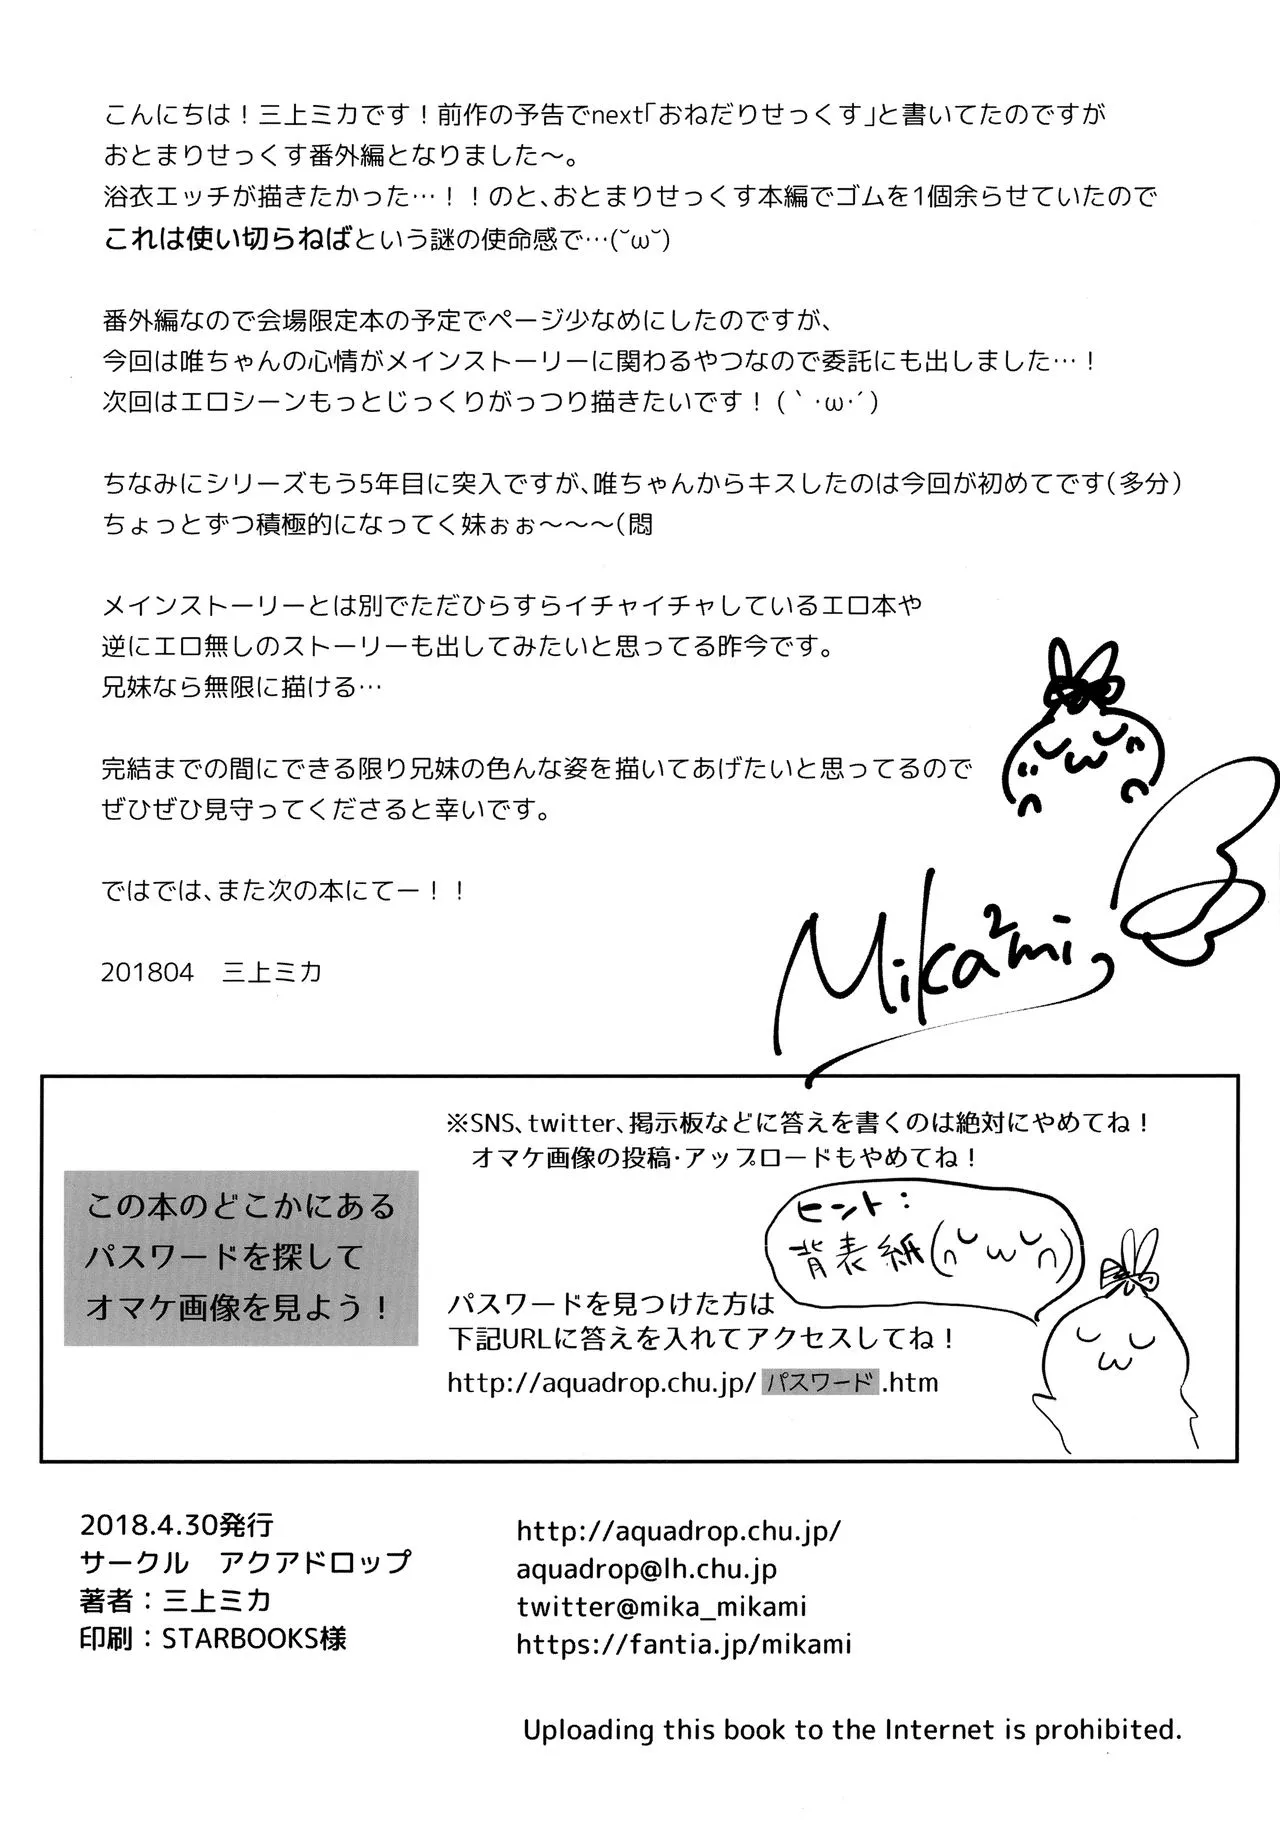 こんにちは！三上ミカです！前作の予告でnext｢おねだりせっくす｣と書いてたのですが
おとまりせっくす番外編となりました～。
浴衣エッチが描きたかった…！！のと、おとまりせっくす本編でゴムを1個余らせていたので
これは使い切らねばという謎の使命感で…(˘ω˘)
番外編なので会場限定本の予定でページ少なめにしたのですが、
今回は唯ちゃんの心情がメインストーリーに関わるやつなので委託にも出しました…！
次回はエロシーンもっとじっくりがっつり描きたいです！(｀･ω･´)
ちなみにシリーズもう5年目に突入ですが、唯ちゃんからキスしたのは今回が初めてです(多分)
ちょっとずつ積極的になってく妹ぉぉ～～～(悶
メインストーリーとは別でただひらすらイチャイチャしているエロ本や
逆にエロ無しのストーリーも出してみたいと思ってる昨今です。
兄妹なら無限に描ける…
完結までの間にできる限り兄妹の色んな姿を描いてあげたいと思ってるので
ぜひぜひ見守ってくださると幸いです。
ではでは、また次の本にてー！！
Mika2mi
201804　三上ミカ
※SNS、twitter、掲示板などに答えを書くのは絶対にやめてね！
オマケ画像の投稿･アップロードもやめてね！
この本のどこかにある
パスワードを探して
オマケ画像を見よう！
ヒント：
背表紙(∩˘ω˘∩)
パスワードを見つけた方は
下記URLに答えを入れてアクセスしてね！
http://aquadrop.chu.jp/パスワード.htm
2018.4.30発行
サークル　アクアドロップ
著者：三上ミカ
印刷：STARBOOKS様
http://aquadrop.chu.jp/
aquadrop@lh.chu.jp
twitter@mika_mikami
https://fantia.jp/mikami
Uploading this book to the Internet is prohibited.